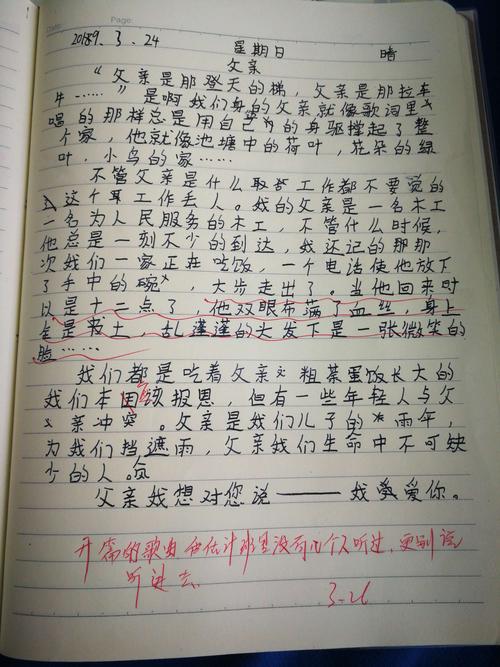 Date: Page:
2019.3.24 星期日 晴
父亲
“父亲是那登天的梯，父亲是那拉车
牛……”是啊我们身的父亲就像歌词里
唱的那样总是用自己的身驱撑起了整
个家，他就像池塘中的荷叶，花朵的绿
叶，小鸟的家……
不管父亲是什么工作都不要觉的
这个工作丢人。我的父亲是一名木工
一名为人民服务的木工，不管什么时候，
他总是一刻不少的到达，我还记的那那
次我们一家正在吃饭，一个电话使他放下
了手中的碗，大步走出了。当他回来时
以是十二点了，他双眼布满了血丝，身上
全是灰土，乱蓬蓬的头发下是一张微笑的
脸……
我们都是吃着父亲粗菜蛋饭长大的
我们本因该报恩，但有一些年轻人与父
亲冲突。父亲是我们儿子的雨伞，
为我们挡遮雨，父亲我们生命中不可缺
少的人。
父亲我想对您说——我爱你。
开篇的歌曲估计那里没有几个人听过，更别说
听进去
3.26